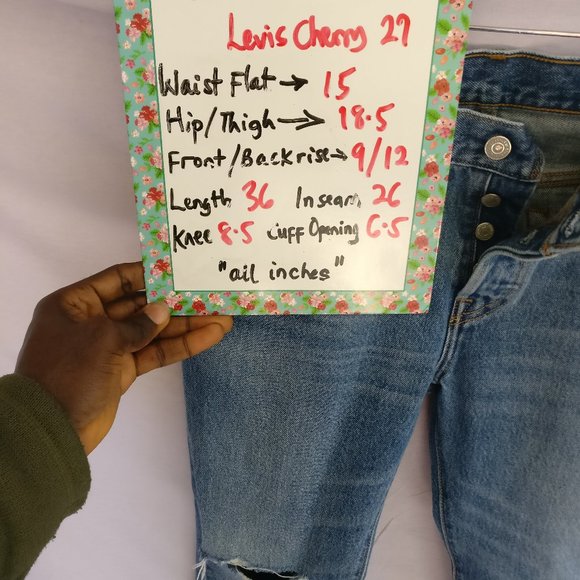 Levis Cherry 27
Waist Flat → 15
Hip/Thigh → 18.5
Front/Backrise→ 9/12
Length 36 Inseam 26
Knee 8.5 Cuff Opening 6.5
"all inches"